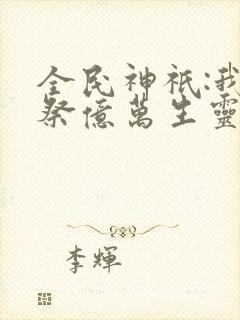 全民神祇:我
祭億萬生靈
李輝